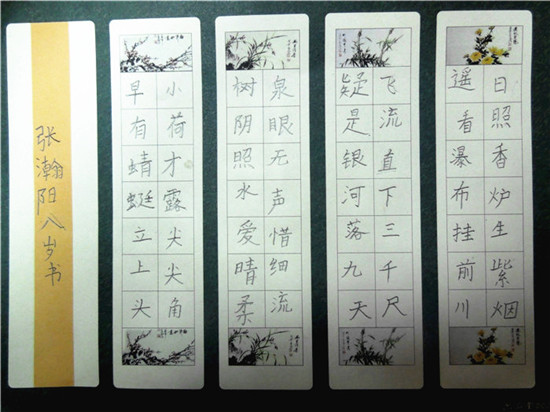 日照香炉生紫烟
遥看瀑布挂前川
飞流直下三千尺
疑是银河落九天
泉眼无声惜细流
树阴照水爱晴柔
小荷才露尖尖角
早有蜻蜓立上头
张瀚阳八岁书